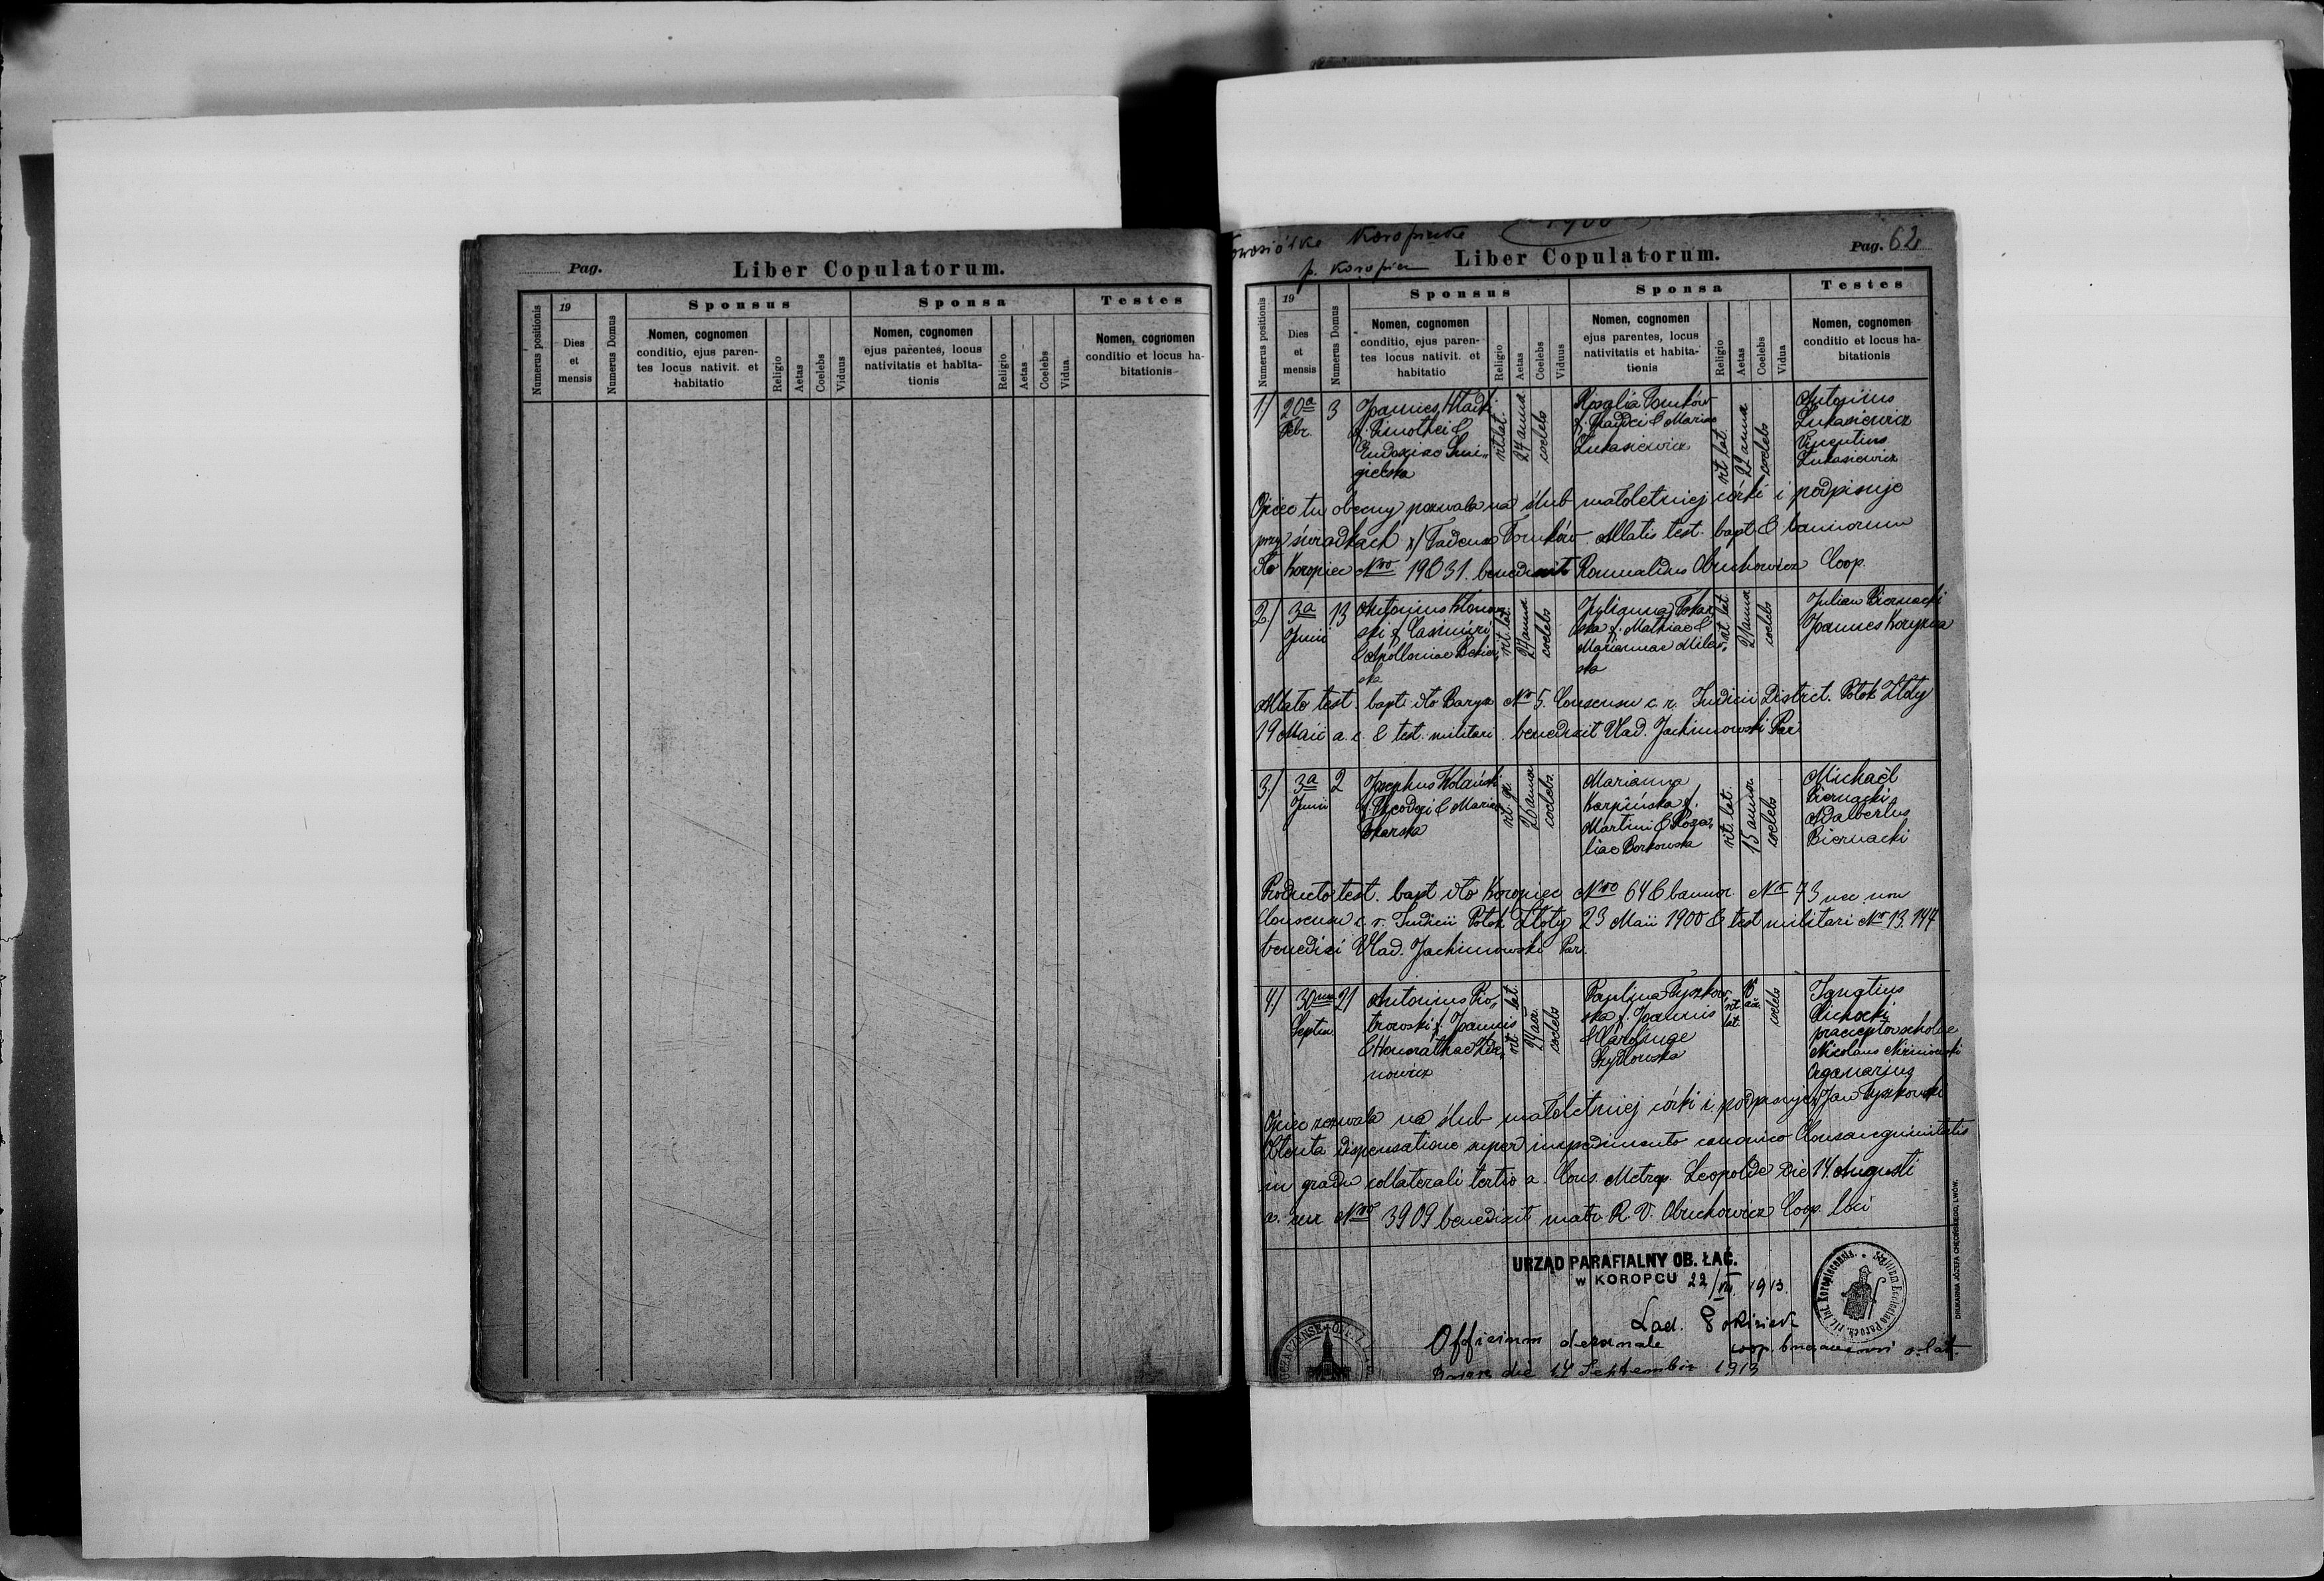 Pag.
Liber Copulatorum.
Numerus positionis
19
Dies
et
mensis
Numerus Domus
Sponsus
Nomen, cognomen
conditio, ejus paren-
tes locus nativit. et
habitatio
Religio
Aetas
Coelebs
Viduus
Sponsa
Nomen, cognomen
ejus parentes, locus
nativitatis et habita-
tionis
Religio
Aetas
Coelebs
Vidua
Testes
Nomen, cognomen
conditio et locus ha-
bitationis
Koropiecka 1900
p. Koropiec
Liber Copulatorum.
Pag. 62
Numerus positionis
19
Dies
et
mensis
Numerus Domus
Sponsus
Nomen, cognomen
conditio, ejus paren-
tes locus nativit. et
habitatio
Religio
Aetas
Coelebs
Viduus
Sponsa
Nomen, cognomen
ejus parentes, locus
nativitatis et habita-
tionis
Religio
Aetas
Coelebs
Vidua
Testes
Nomen, cognomen
conditio et locus ha-
bitationis
1/
20a
Febr.
3
Joannes
f. Timothei &
Eudoxiae Smi„
gielska
rit. lat.
24 annor.
coelebs
Rozalia Tomków
f. Thadei & Mariae
Łukasiewicz
rit. lat.
22 annor
coelebs
Antonius
Łukasiewicz
Vincentius
Łukasiewicz
Ojciec tu obecny pozwala na ślub małoletniej córki i podpisuje
przy świadkach x/ Tadeusz Tomków. Allatis test. bapt & bannorum
dto Koropiec Nro 19 & 31. benedixit Romualdus Obuchowicz Coop.
2/
3a
Junii
13
Antonius
ski f. Casimiri
& Apolloniae
ska
rit. lat.
24 annor
coelebs
Julianna Tokar
ska f. Mathiae &
Mariannae Milew„
ska
rit. lat.
21 annor
coelebs
Julian Biernacki
Joannes
Allato test. bapt. dto Barysz Nr 5. Consensu c. r. Judicii District. Potok Złoty
19 Maii a. c. & test. militari benedixit Vlad. Jachimowski Par.
3/
3a
Junii
2
Josephus Wolański
f. Theodozi & Mariae
Tokarska
rit. gr.
26 annor
coelebs
Marianna
Karpińska f.
Martini & Roza„
liae Borkowska
rit. lat.
15 annor.
coelebs
Michaël
Biernacki
Adalbertus
Biernacki
Producto test. bapt dto Koropiec Nro 64 & bannor. Nr 73 nec non
Consensu c. r. Judicii Potok Złoty 23 Maii 1900 & test militari Nr 13.144
benedixi Vlad. Jachimowski Par.
4./
30ma
Septem.
21
Antonius Pio„
trowski f. Joannis
& Honorathae Zda„
nowicz
rit. lat
24 an.
coelebs
Paulina Tyszkow„
ska f. Joannis
& Carolinae
Szydłowska
rit.
lat.
coelebs
Ignatius
Cichocki
praeceptor scholae
Nicolaus
Organarius
Ojciec zezwala na ślub małoletniej córki i podpisuje Jan Tyszkowski
Obtenta dispensatione super impedimento canonico Consanguinitatis
in gradu collaterali tertio a Cons. Metrop. Leopoldi die 14. Augusti
a. cur Nro 3909 benedixit matr. R. V. Obuchowicz Coop. loci
URZĄD PARAFIALNY OB. ŁAĆ.
W KOROPCU 22/ 1913.
Lad.
Officium decanale
coop. o. lat.
die 14 Septembris 1913
DRUKARNIA JÓZEFA CHĘCIŃSKIEGO, LWÓW.